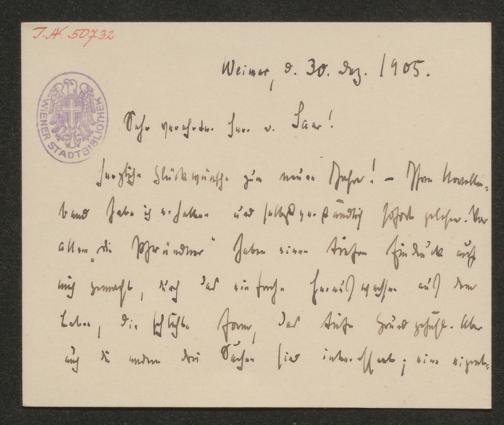 I.N. 50732
WIENER STADTBIBLIOTHEK
Weimar, d. 30. Dez. 1905.
Sehr verehrter Herr v. Saar!
herzliche Glückwünsche zum neuen Jahre! – Ihren Novellen-
band habe ich erhalten und selbstverständlich sofort gelesen. Vor
allem „die Pfründner" haben einen tiefen Eindruck auf
mich gemacht, durch das einfache Herauswachsen aus dem
Leben, die schlichte Form, das tiefe Grundgefühl. Aber
auch die andern drei Sachen sind interessant; eine eigent-